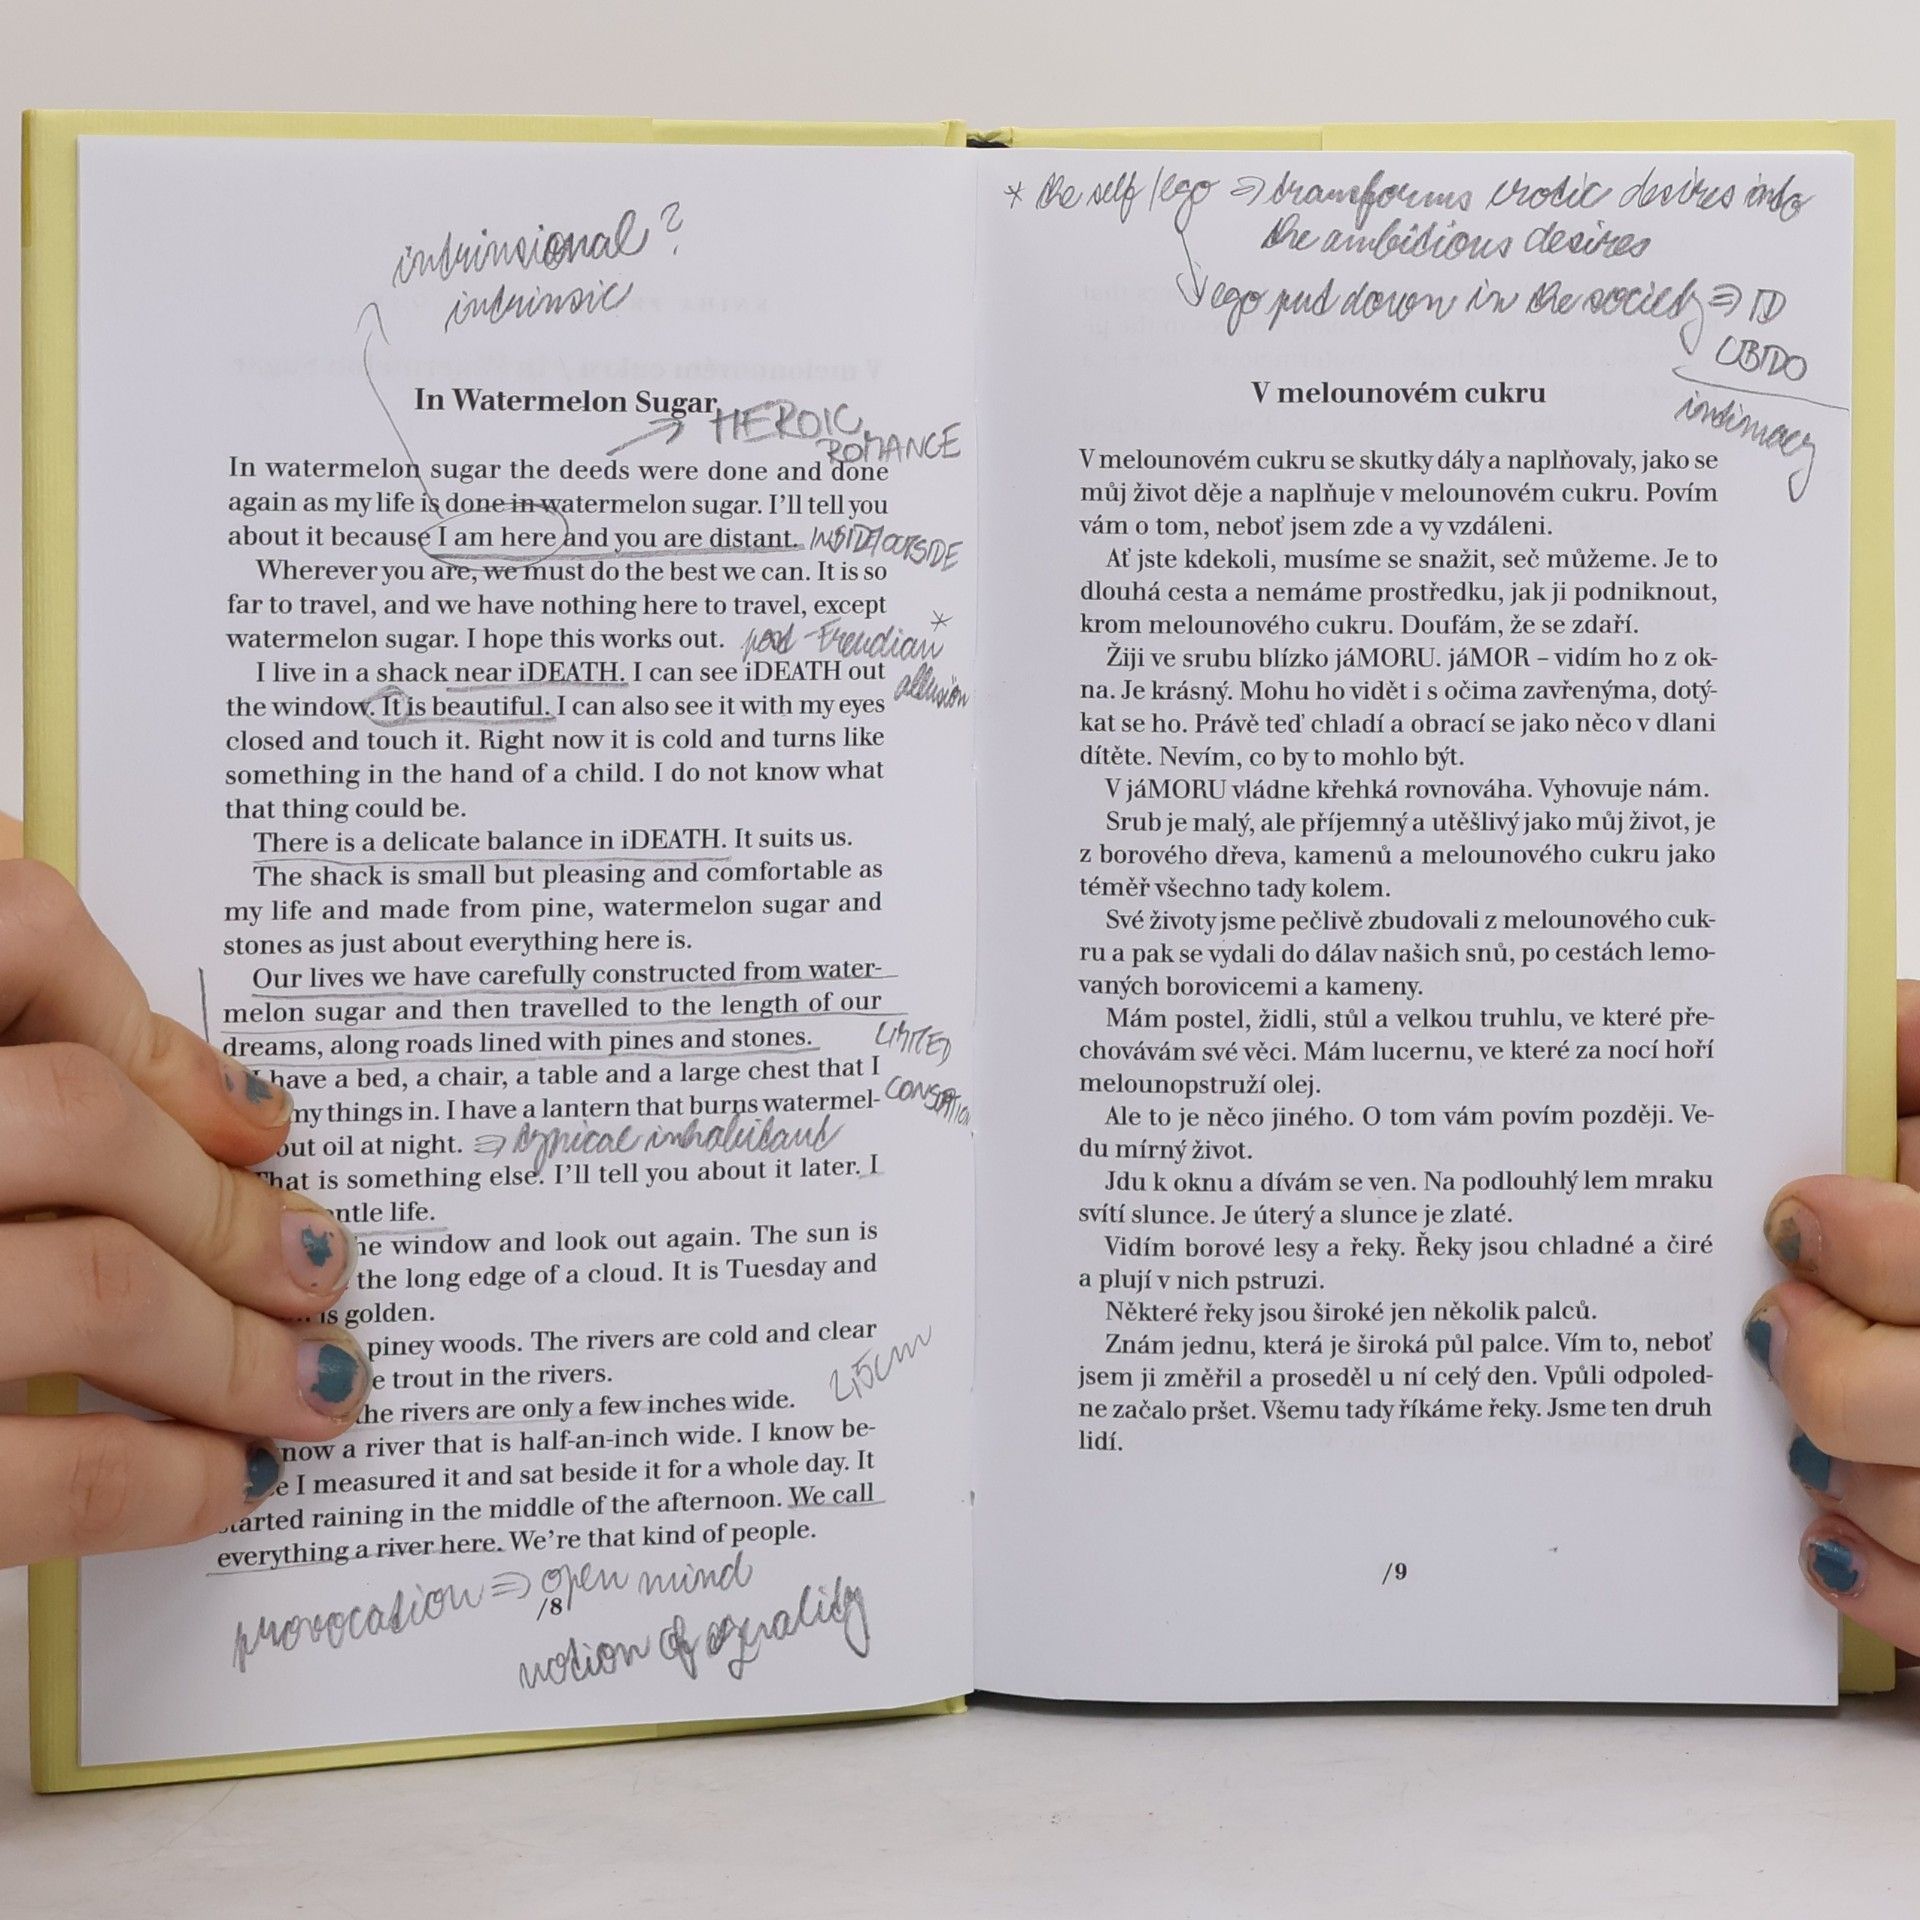 intrinsional?
intrinsic
In Watermelon Sugar
→ HEROIC
ROMANCE
In watermelon sugar the deeds were done and done
again as my life is done in watermelon sugar. I’ll tell you
about it because I am here and you are distant.
INSIDE/OUTSIDE
Wherever you are, we must do the best we can. It is so
far to travel, and we have nothing here to travel, except
watermelon sugar. I hope this works out.
post-Freudian *
allusion
I live in a shack near iDEATH. I can see iDEATH out
the window. It is beautiful. I can also see it with my eyes
closed and touch it. Right now it is cold and turns like
something in the hand of a child. I do not know what
that thing could be.
There is a delicate balance in iDEATH. It suits us.
The shack is small but pleasing and comfortable as
my life and made from pine, watermelon sugar and
stones as just about everything here is.
Our lives we have carefully constructed from water-
melon sugar and then travelled to the length of our
dreams, along roads lined with pines and stones.
LIMITED
have a bed, a chair, a table and a large chest that I
my things in. I have a lantern that burns watermel-
out oil at night. ⇒ typical inhabitant
hat is something else. I’ll tell you about it later. I
ntle life.
he window and look out again. The sun is
the long edge of a cloud. It is Tuesday and
is golden.
piney woods. The rivers are cold and clear
e trout in the rivers.
2,5cm
the rivers are only a few inches wide.
now a river that is half-an-inch wide. I know be-
e I measured it and sat beside it for a whole day. It
started raining in the middle of the afternoon. We call
everything a river here. We’re that kind of people.
provocation ⇒ open mind
/8
notion of equality
* the self/ego ⇒ transforms erotic desires into
the ambitious desires
ego put down in the society ⇒ ID
LIBIDO
intimacy
V melounovém cukru
V melounovém cukru se skutky dály a naplňovaly, jako se
můj život děje a naplňuje v melounovém cukru. Povím
vám o tom, neboť jsem zde a vy vzdáleni.
Ať jste kdekoli, musíme se snažit, seč můžeme. Je to
dlouhá cesta a nemáme prostředku, jak ji podniknout,
krom melounového cukru. Doufám, že se zdaří.
Žiji ve srubu blízko jáMORU. jáMOR – vidím ho z ok-
na. Je krásný. Mohu ho vidět i s očima zavřenýma, dotý-
kat se ho. Právě teď chladí a obrací se jako něco v dlani
dítěte. Nevím, co by to mohlo být.
V jáMORU vládne křehká rovnováha. Vyhovuje nám.
Srub je malý, ale příjemný a utěšlivý jako můj život, je
z borového dřeva, kamenů a melounového cukru jako
téměř všechno tady kolem.
Své životy jsme pečlivě zbudovali z melounového cuk-
ru a pak se vydali do dálav našich snů, po cestách lemo-
vaných borovicemi a kameny.
Mám postel, židli, stůl a velkou truhlu, ve které pře-
chovávám své věci. Mám lucernu, ve které za nocí hoří
melounopstruží olej.
Ale to je něco jiného. O tom vám povím později. Ve-
du mírný život.
Jdu k oknu a dívám se ven. Na podlouhlý lem mraku
svítí slunce. Je úterý a slunce je zlaté.
Vidím borové lesy a řeky. Řeky jsou chladné a čiré
a plují v nich pstruzi.
Některé řeky jsou široké jen několik palců.
Znám jednu, která je široká půl palce. Vím to, neboť
jsem ji změřil a proseděl u ní celý den. Vpůli odpoled-
ne začalo pršet. Všemu tady říkáme řeky. Jsme ten druh
lidí.
/9